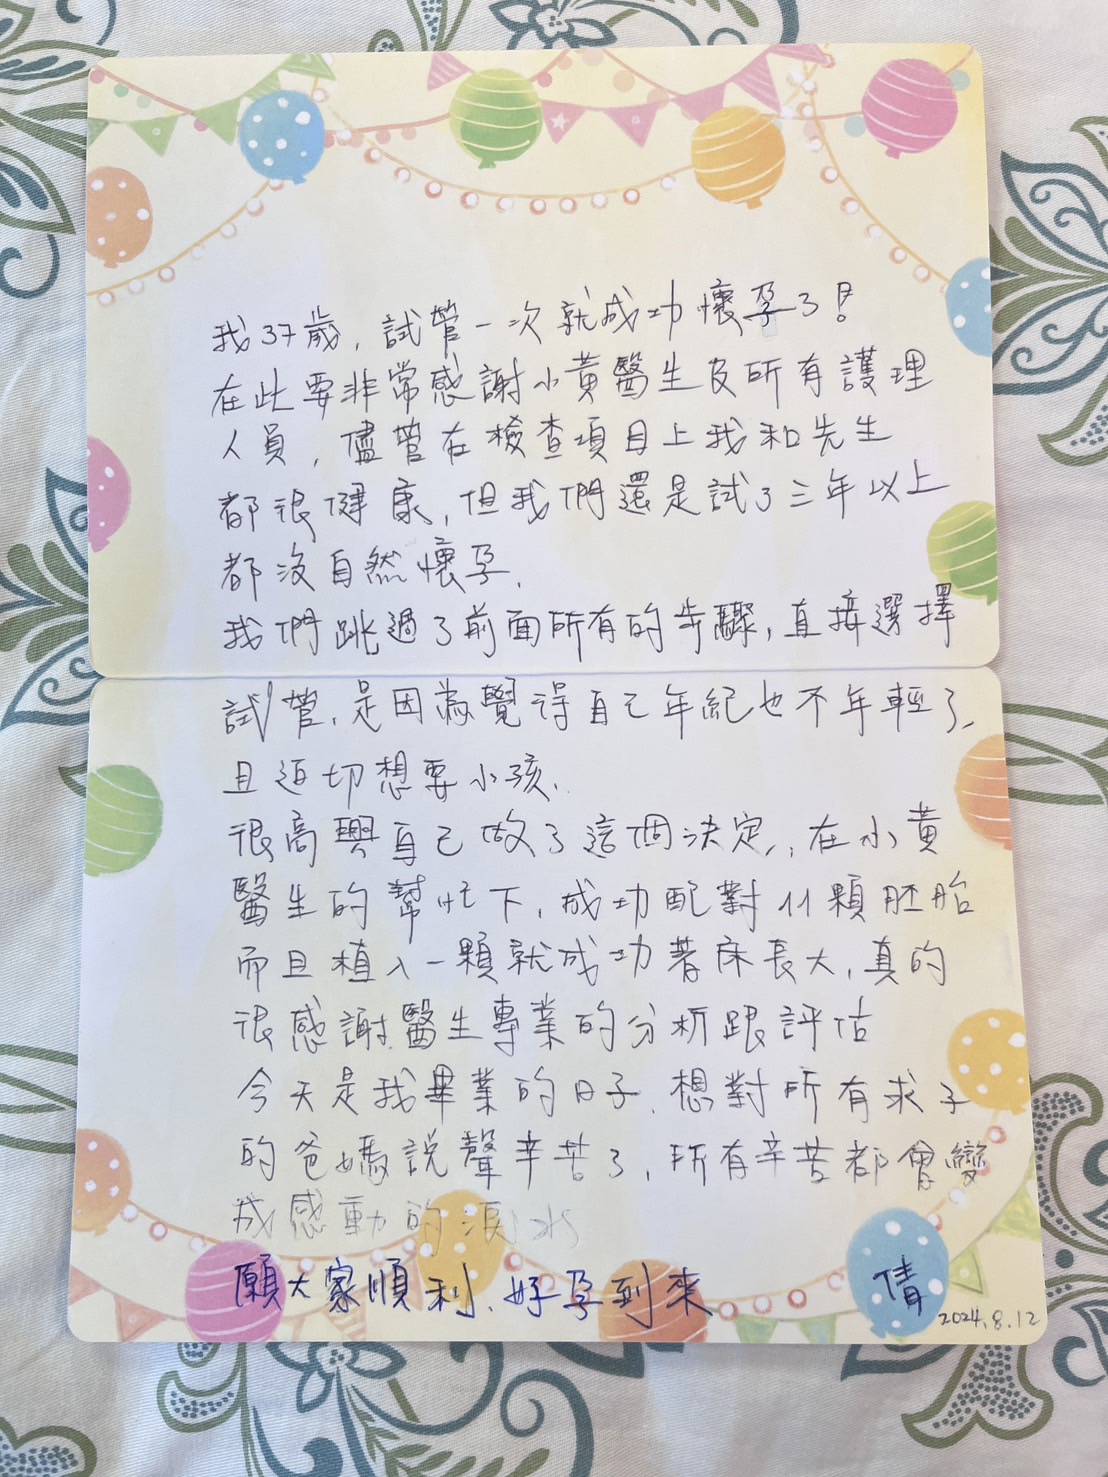 我37歲，試管一次就成功懷孕了!
在此要非常感謝小黃醫生及所有護理
人員，儘管在檢查項目上我和先生
都很健康，但我們還是試了三年以上
都沒自然懷孕.
我們跳過了前面所有的步驟，直接選擇
試管，是因為覺得自己年紀也不年輕了、
且迫切想要小孩.
很高興自己做了這個決定，在小黃
醫生的幫忙下，成功配對11顆胚胎
而且植入一顆就成功著床長大，真的
很感謝醫生專業的分析跟評估
今天是我畢業的日子，想對所有求子
的爸媽說聲辛苦了，所有辛苦都會變
成感動的淚水
願大家順利、好孕到來
倩
2024.8.12